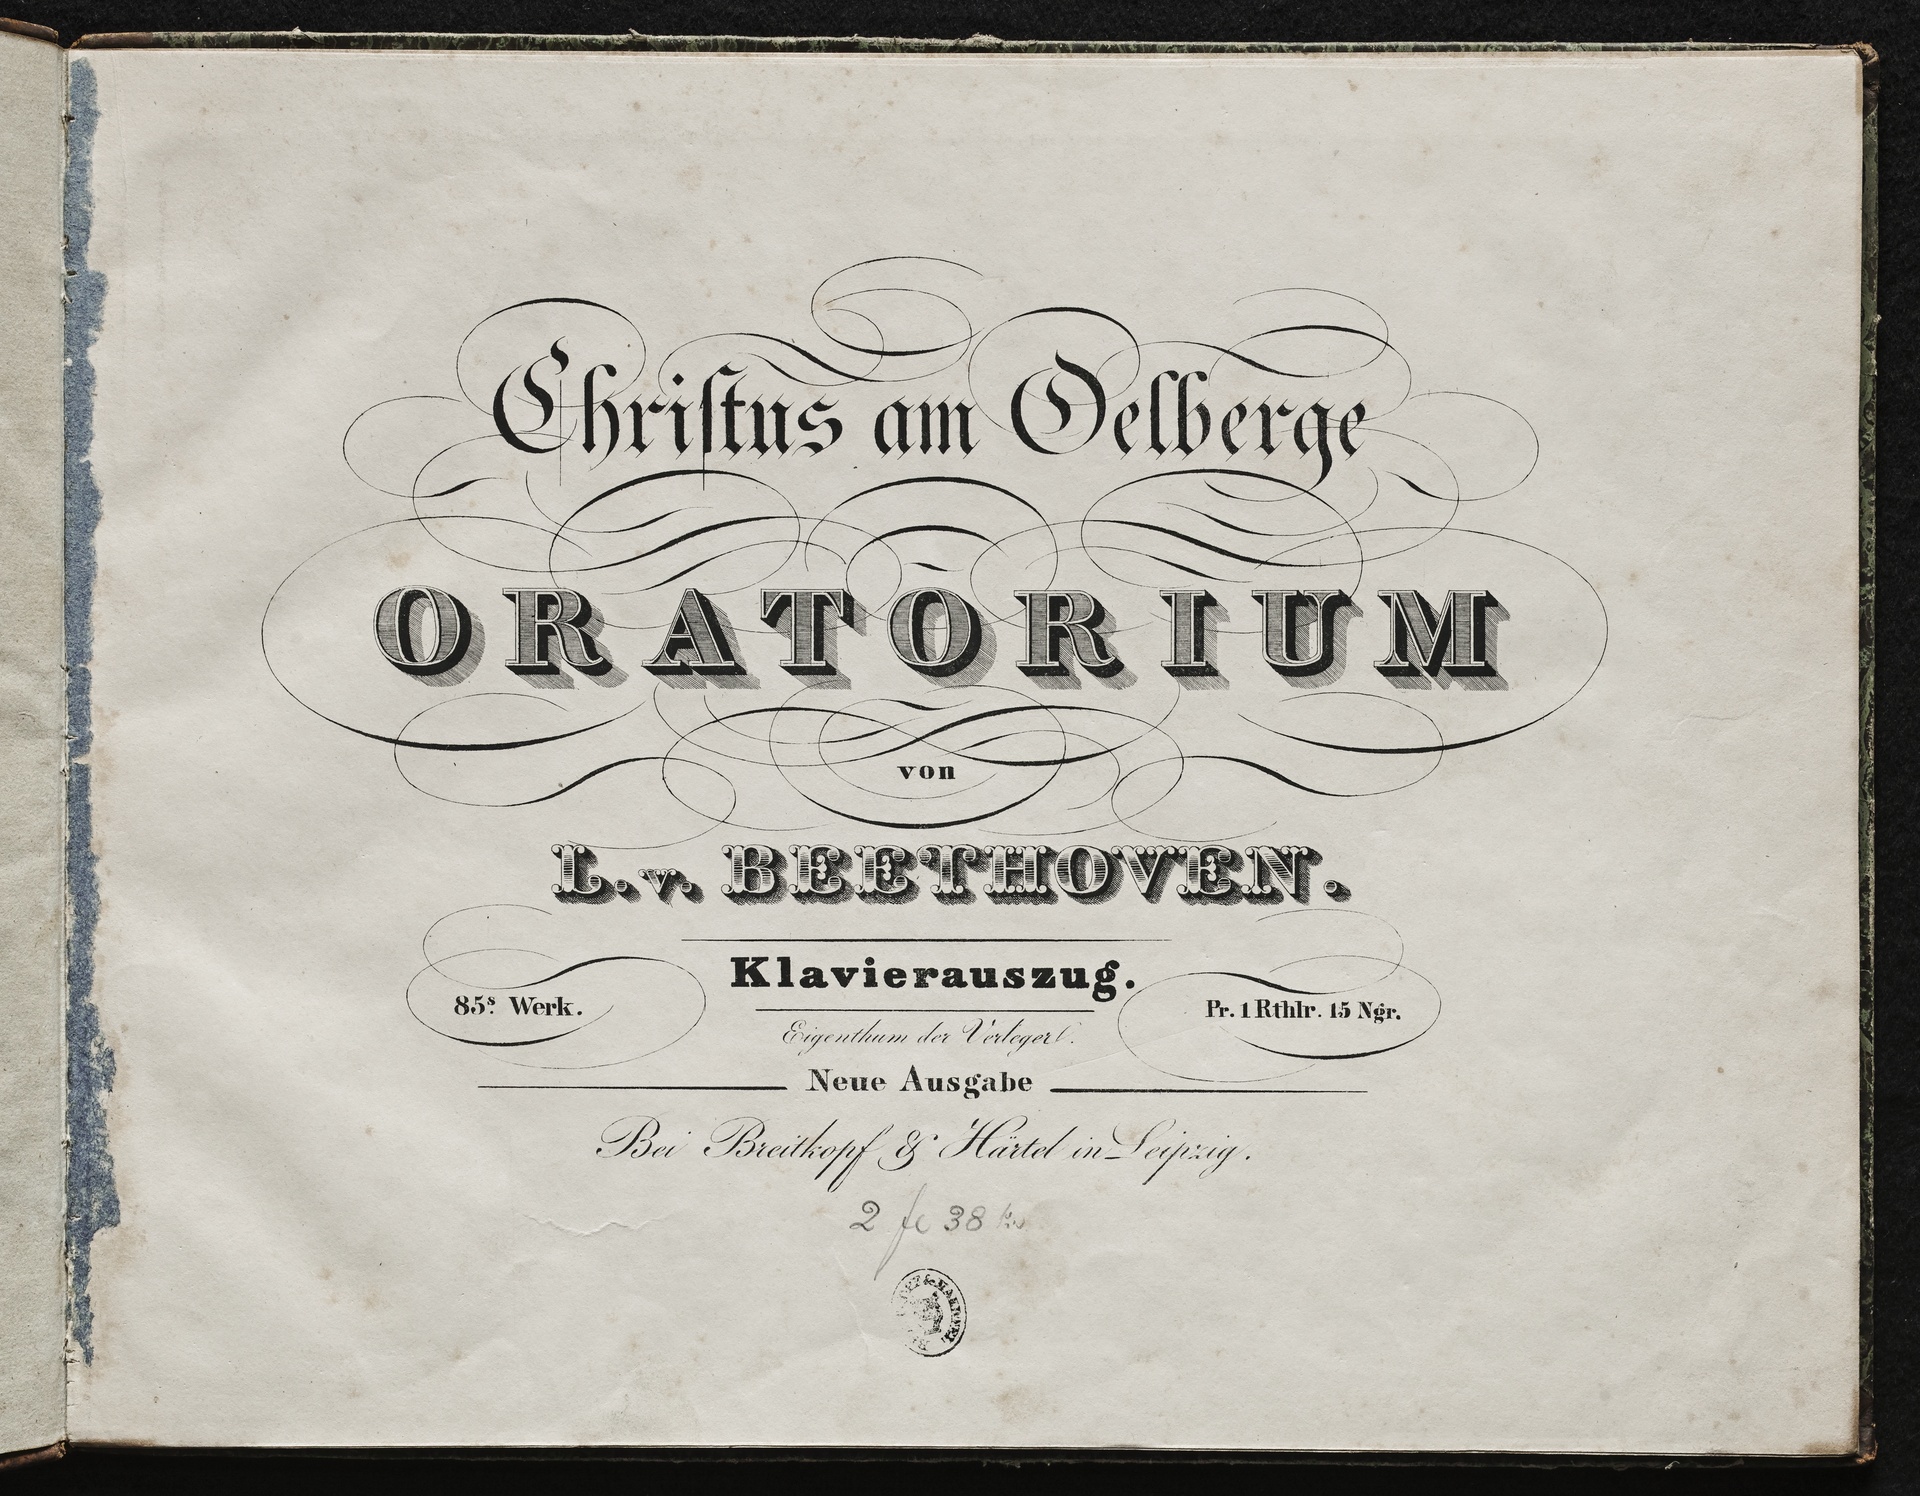 Christus am Oelberge
ORATORIUM
von
L. v. BEETHOVEN.
Klavierauszug.
85s. Werk.
Pr. 1 Rthlr. 15 Ngr.
Eigenthum der Verleger.
Neue Ausgabe
Bei Breitkopf & Härtel in Leipzig.
2 38